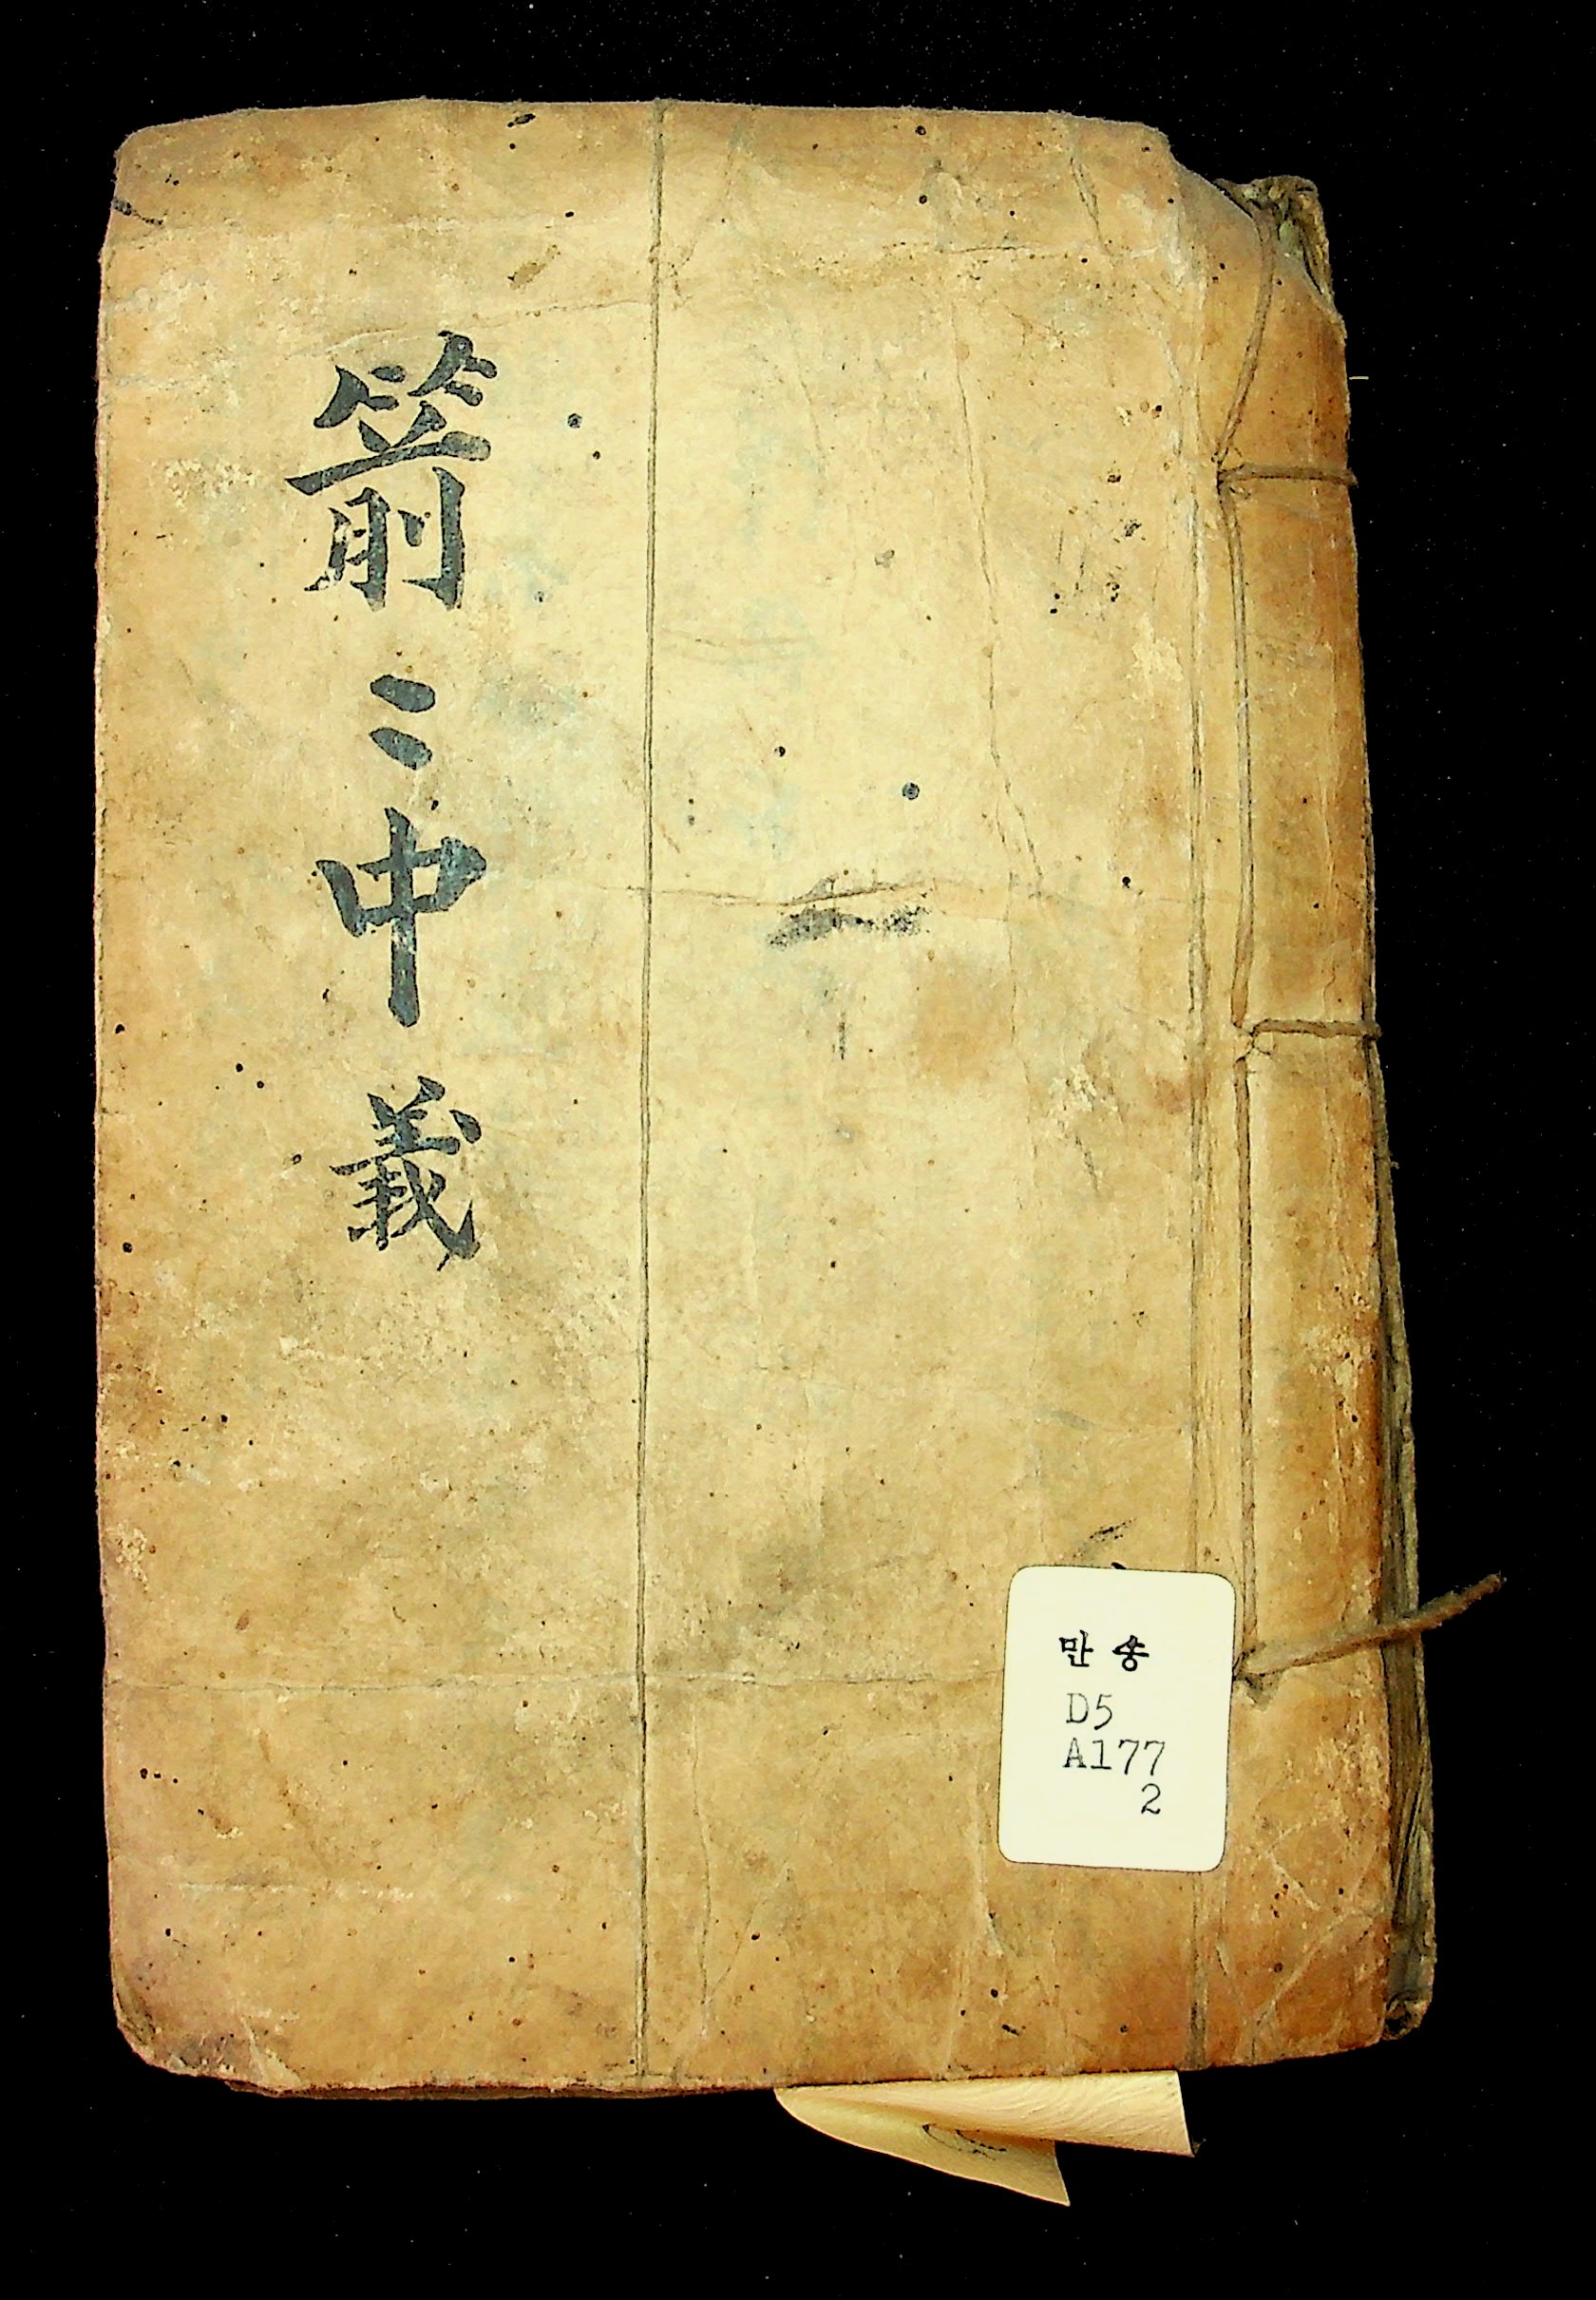 箭〻中義
만송
D5
A177
2